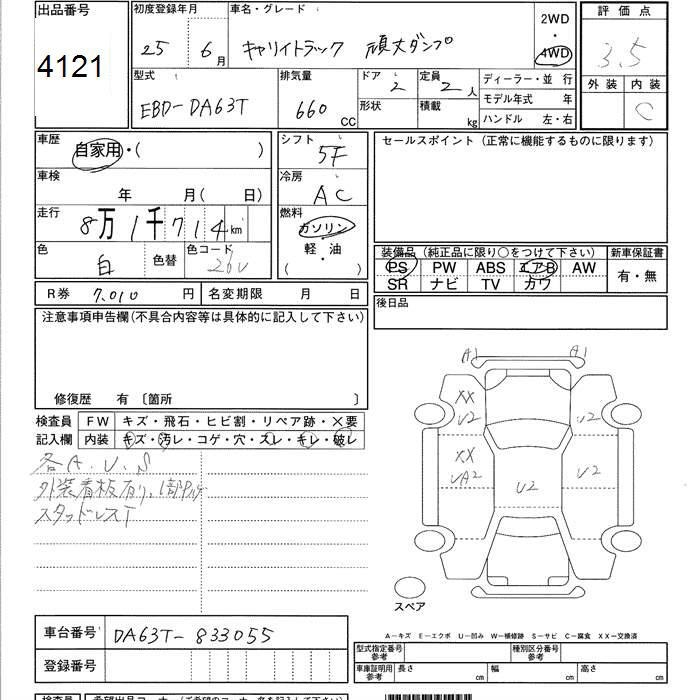 出品番号 4121
初度登録年月 25年 6月
車名・グレード キャリイトラック 頑丈ダンプ
2WD・4WD
評価点 3.5
外装 内装 C
型式 EBD-DA63T
排気量 660 CC
ドア 2
形状
定員 2人
積載 kg
ディーラー・並行
モデル年式 年
ハンドル 左・右
車歴 自家用・( )
シフト 5F
セールスポイント (正常に機能するものに限ります)
車検 年 月( 日)
冷房 AC
走行 8万1千714km
燃料 ガソリン・軽・油
( )
色 白 色替 色コード 26U
装備品 (純正品に限り○をつけて下さい)
新車保証書 有・無
PS PW ABS エアB AW
SR ナビ TV カワ
R券 7,010 円 名変期限 月 日
後日品
注意事項申告欄(不具合内容等は具体的に記入して下さい)
修復歴 有 〔箇所 〕
検査員記入欄
FW キズ・飛石・ヒビ割・リペア跡・X要
内装 キズ・汚レ・コゲ・穴・スレ・キレ・破レ
各A.U.S
外装看板有り,1部
スタッドレスT
A1 A1
XX U2 U2
XX UA2 U2 U2
スペア
車台番号 DA63T-833055
登録番号
A-キズ E-エクボ U-凹み W-補修跡 S-サビ C-腐食 XX-交換済
型式指定番号 参考 種別区分番号 参考
車庫証明用 参考 長さ cm 幅 cm 高さ cm
検査員 希望出品コーナー(ご希望のコーナー名を記入下さい)